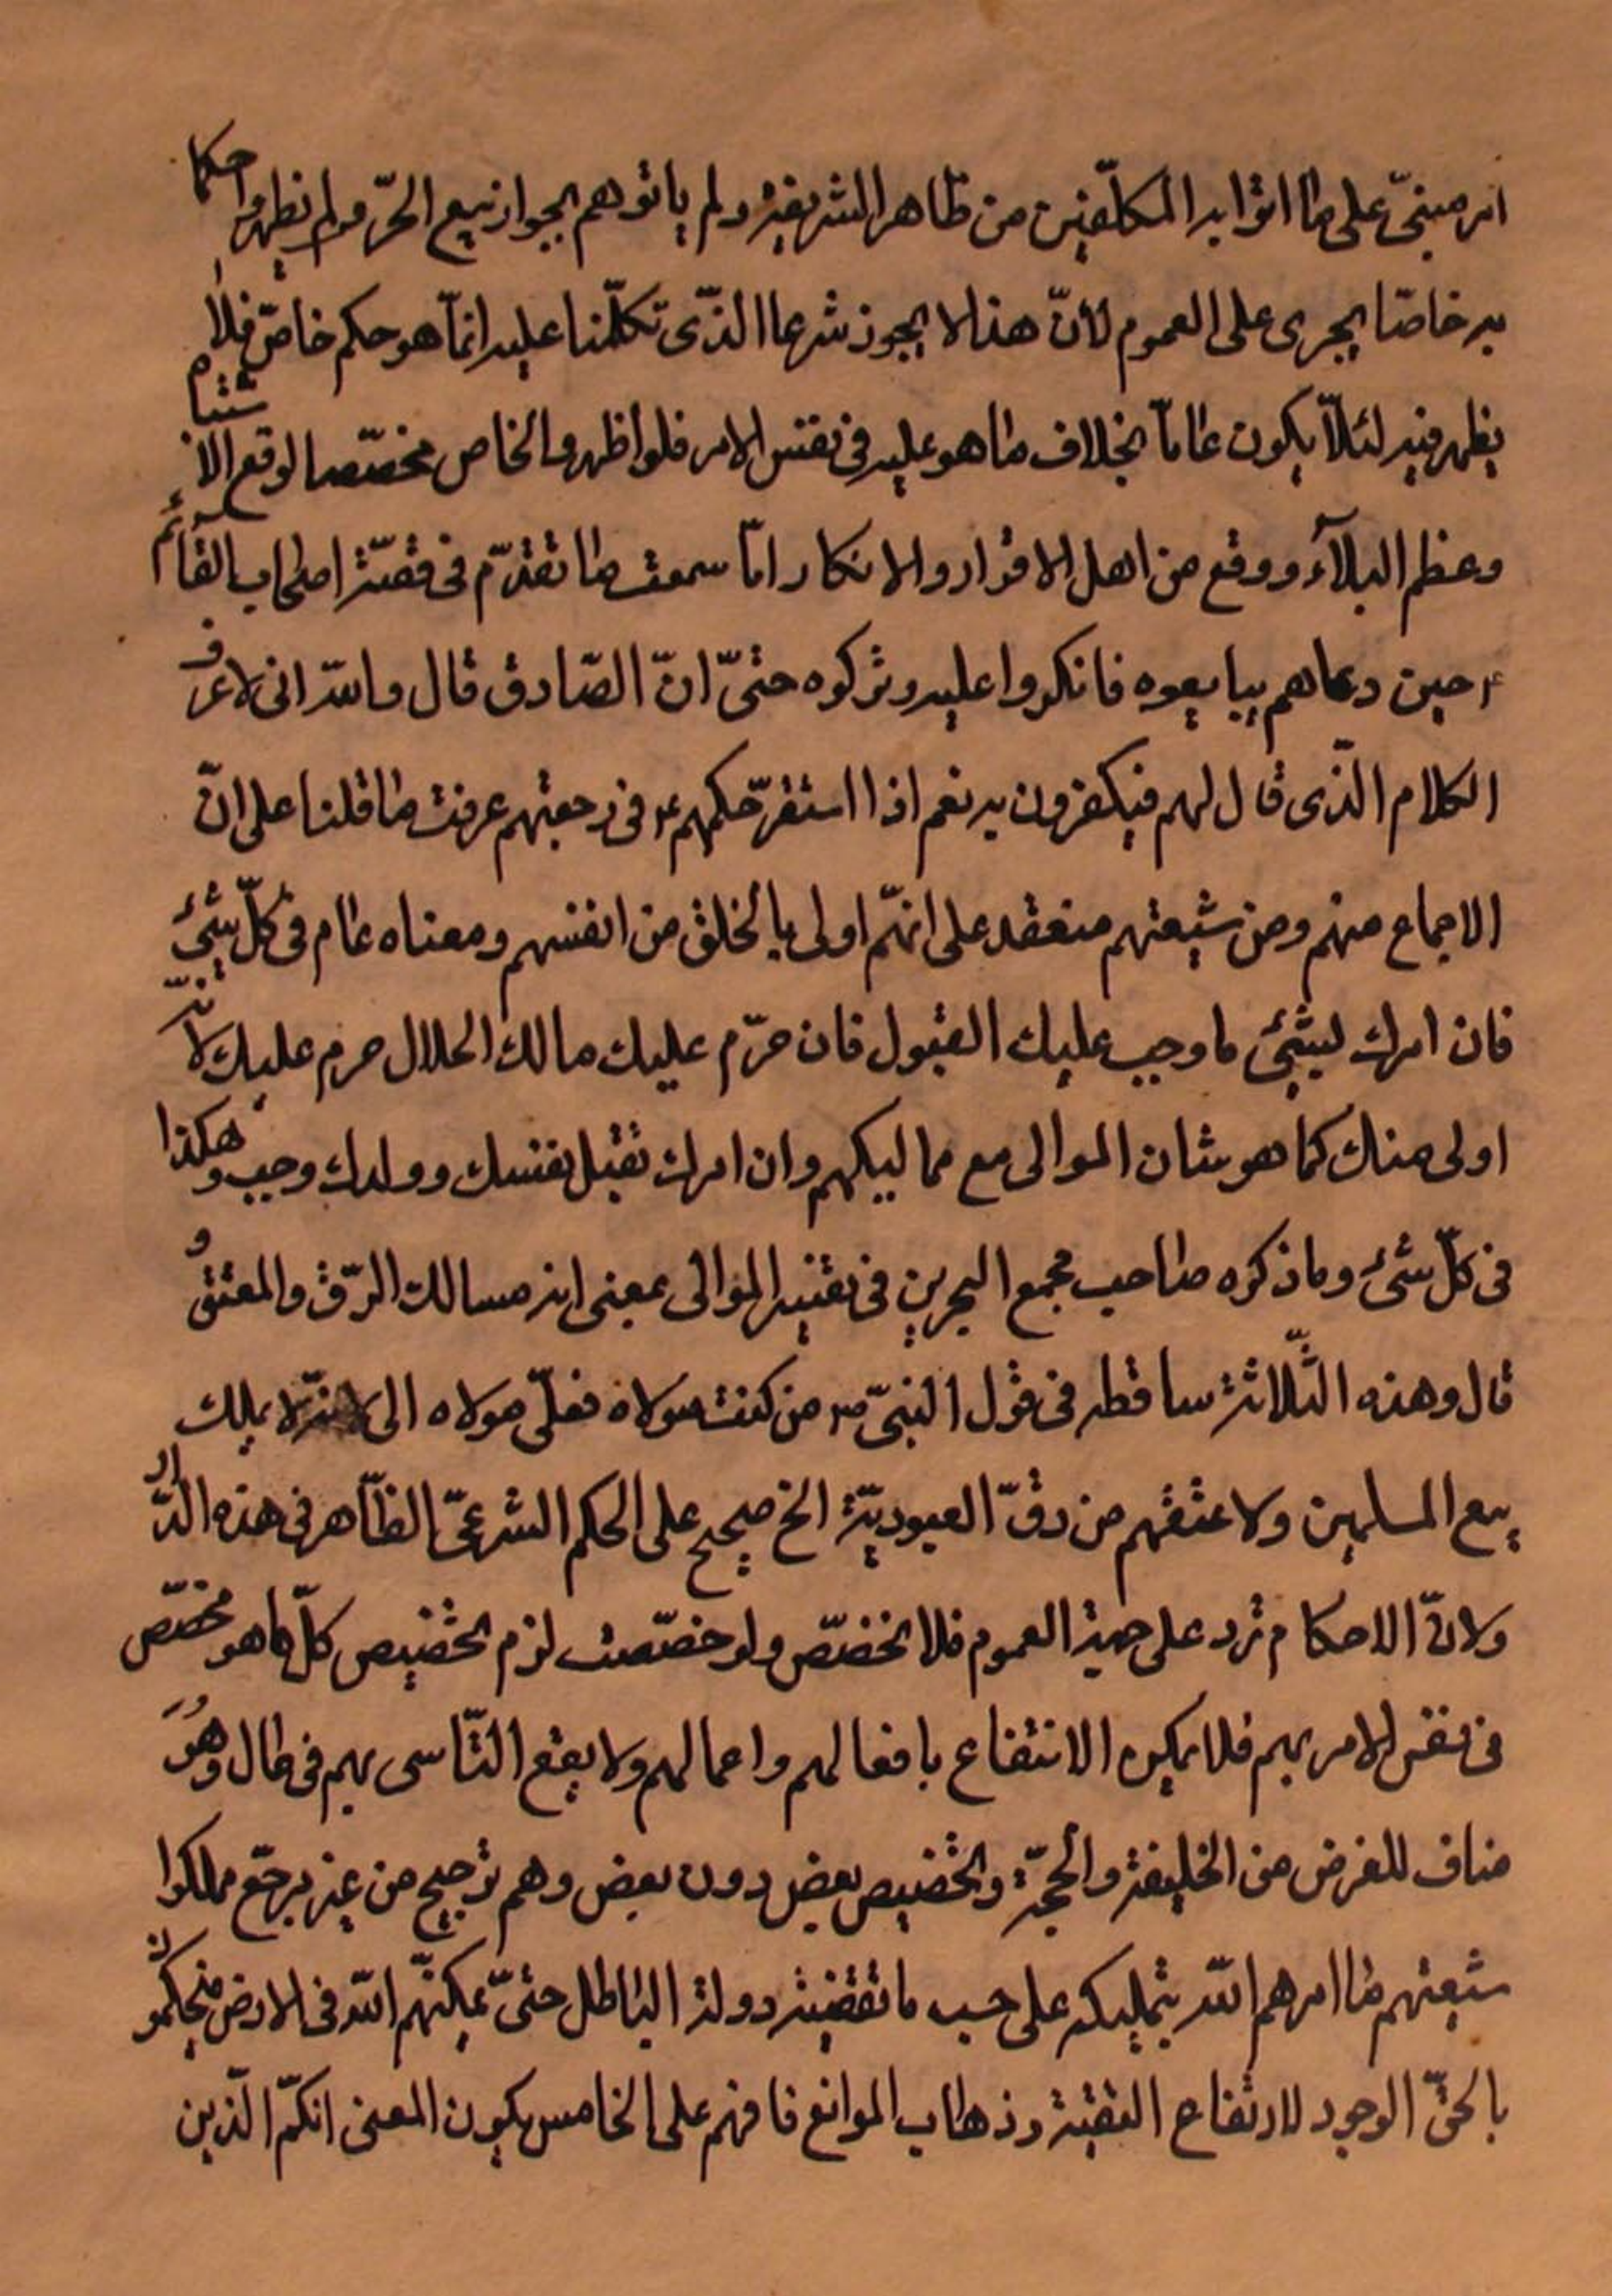 انه مبنىّ على ما اتوا به المكلّفين من ظاهر الشريعة ولم ياتوهم بجواز بيع الحرّ ولم يظهروا حكما
به خاصّا يجرى على العموم لأنّ هذا لا يجوز شرعا الذّى تكلّمنا عليه انمّا هو حكم خاصّ فلا
يظهر فيه لئلّا يكون عامّا بخلاف ما هو عليه فى نفس الامر فلو اظهروا الخاص مخصّصا لوقع الاشتباه
وعظم البلآء ووقع من اهل الاقرار والانكار امّا سمعت ما تقدّم فى قصّة اصحاب القآئم
ع حين دعاهم يبايعوه فانكروا عليه وتركوه حتىّ انّ الصّادق قال والله انى لاعرف
الكلام الذّى قال لهم فيكفرون به نعم اذا استقرّ حكمهم ع فى رجعتهم عرفت ما قلنا على انّ
الاجماع منهم ومن شيعتهم منعقد على انهّم اولى بالخلق من انفسهم ومعناه عام فى كلّ شئ
فان امرك لبشئ ما وجب عليك القبول فان حرّم عليك مالك الحلال حرم عليك لانّه
اولى منك كما هو شان الموالى مع مماليكهم وان امرك بقتل نفسك وولدك وجب وهكذا
فى كلّ شئ وما ذكره صاحب مجمع البحرين فى تفسير الموالى بمعنى انه مسالك الرّق والمعتق و
قال وهذه الثّلاثة ساقطه فى قول النبىّ ص من كنت مولاه فعلىّ مولاه الى لانّه لا يملك
بيع المسلمين ولا عتقهم من رقّ العبوديّة الخ صحيح على الحكم الشرعىّ الظّاهر فى هذه الدّار
ولانّ الاحكام ترد على جهة العموم فلا تخصّص ولو خصّصت لزم تخصيص كلّ ما هو مختصّ
فى نفس الامر بهم فلا يمكن الانتفاع بافعالهم واعمالهم ولا يقع التّاسى بهم فى حال وهو
مناف للغرض من الخليفة والحجّة وتخصيص بعض دون بعض وهم ترجيح من غير مرجّح ملكوا
شيعتهم ما امرهم الله بتمليكه على حسب ما تقتضيه دولة الباطل حتىّ يمكنّهم الله فى الارض فيحكمون
بالحقّ الوجود لارتفاع التقيّة وذهاب الموانع فافهم على الخامس يكون المعنى انكمّ الذّين